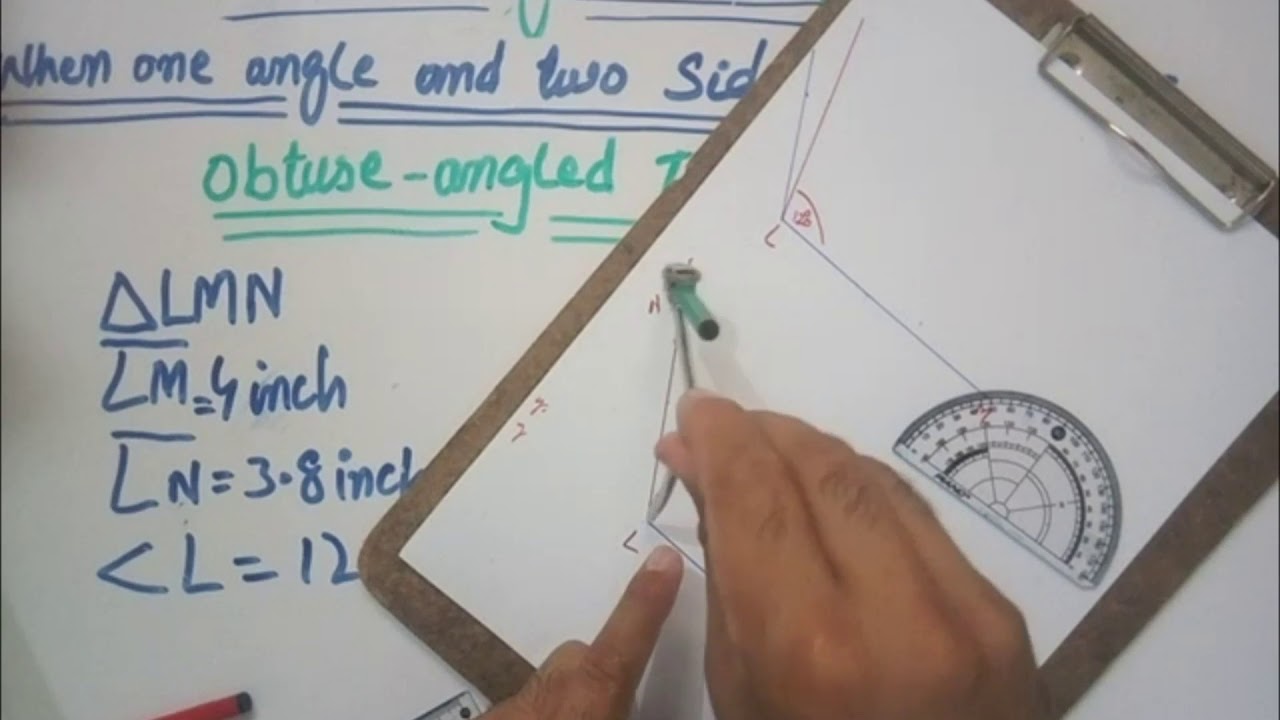 When one angle and two Sid
Obtuse-angled T
△LMN
LM=4 inch
LN=3.8 inch
<L=12
N
L
L